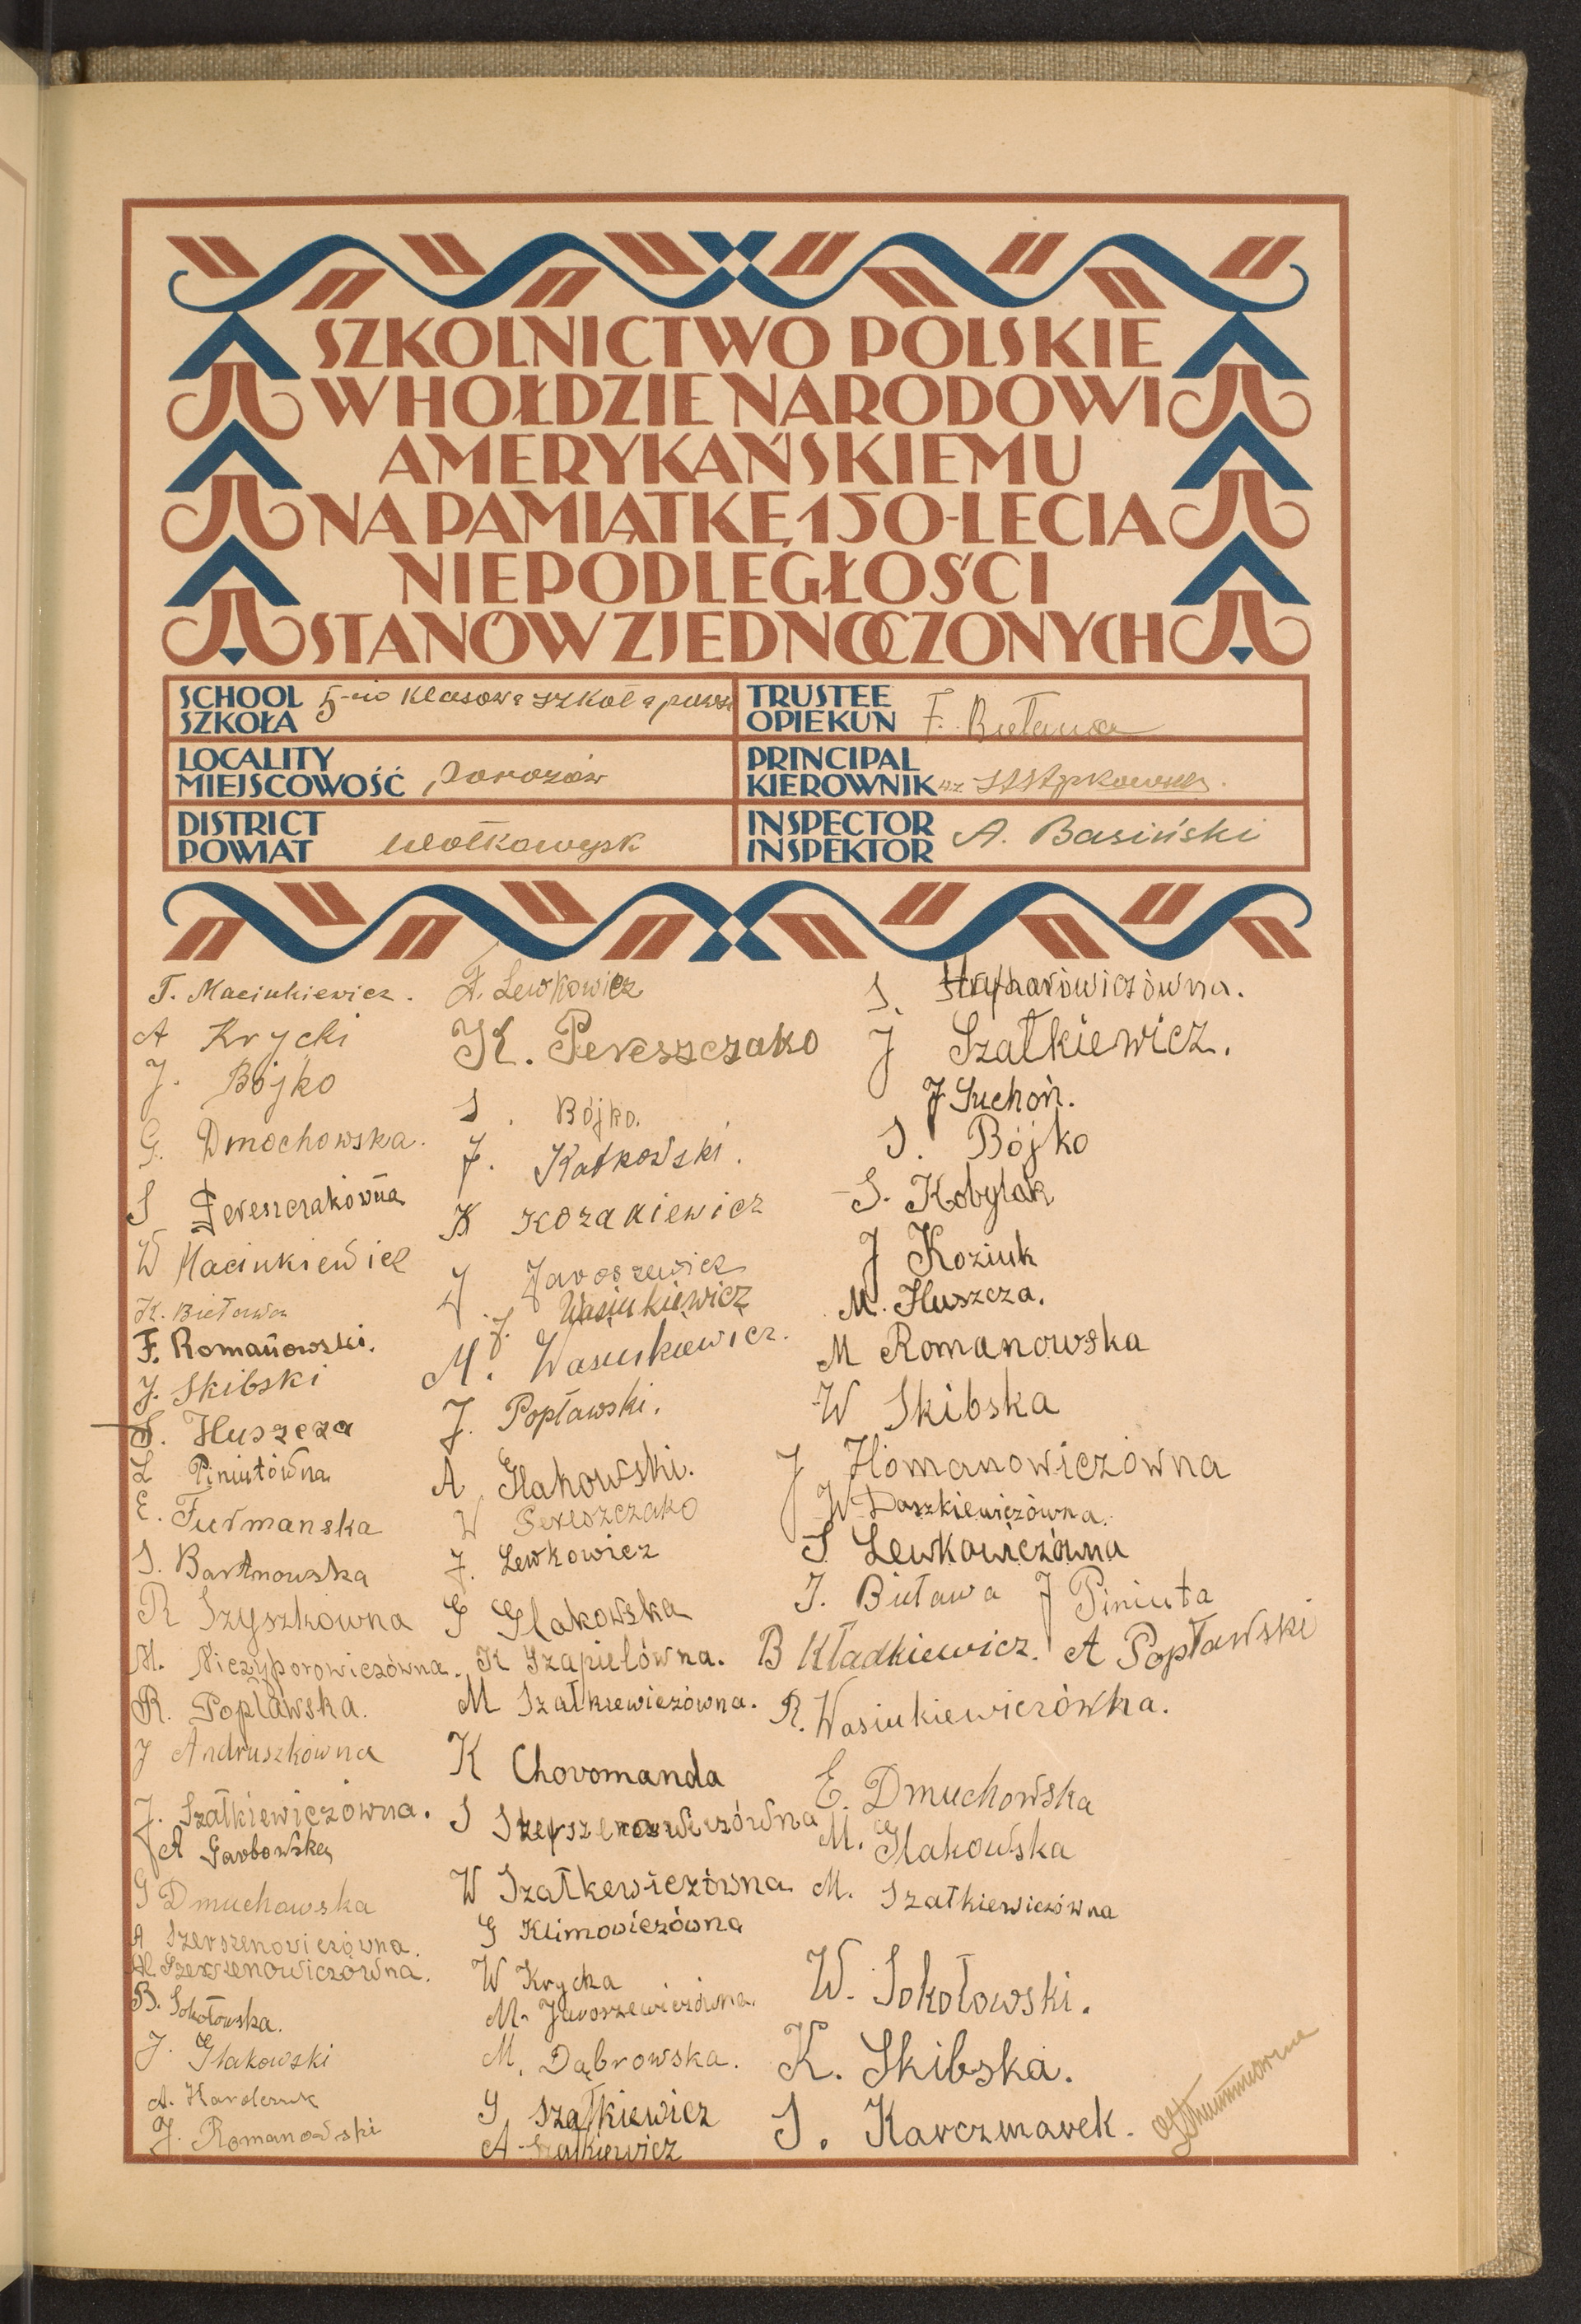 SZKOLNICTWO POLSKIE
W HOŁDZIE NARODOWI
AMERYKAŃSKIEMU
NA PAMIĄTKĘ 150-LECIA
NIEPODLEGŁOŚCI
STANÓW ZJEDNOCZONYCH
SCHOOL
SZKOŁA
5-cio klasowa szkoła powsz
TRUSTEE
OPIEKUN
F. Bieława
LOCALITY
MIEJSCOWOŚĆ
Porozów
PRINCIPAL
KIEROWNIK
wz
DISTRICT
POWIAT
Wołkowysk
INSPECTOR
INSPEKTOR
A. Basiński
T. Maciukiewicz.
A Krycki
J. Bójko
G. Dmochowska.
S Pereszczakówna
W Maciukiewicz
K. Bieława
F. Romanowski.
J. Skibski
S. Huszcza
L Piniutówna
E. Furmanska
S. Bartnowska
R Szyszkówna
M. Niczyporowiczówna.
R. Popławska.
J Andruszkówna
J. Szałkiewiczówna.
A Garbowska
G Dmuchowska
A Szerszenowiczówna.
H Szerszenowiczówna.
B. Sokołowska.
J. Glakowski
A. Karolczuk
J. Romanowski
A. Lewkowicz
K. Pereszczako
S. Bójko.
J. Katkowski.
K Kozakiewicz
J Jaroszewicz
J. Wasiukiewicz
M. Wasiukiewicz.
J. Popławski.
A Glakowski.
W Pereszczako
J. Lewkowicz
G Glakowska
K Szapielówna.
M Szałkiewiczówna.
K Choromanda
S Szerszenowiczówna
W Szałkewiczówna
G Klimowiczówna
W Krycka
M. Jaroszewiczówna.
M. Dąbrowska.
G Szałkiewicz
A. Szałkiewicz
S.
J Szałkiewicz.
J Suchoń.
S. Bójko
S. Kobylak
J Koziuk
M. Huszcza.
M Romanowska
W Skibska
J Homanowiczówna
W Daszkiewiczówna.
S Lewkowiczówna
J. Bieława J Piniuta
B Kładkiewicz. A Popławski
R. Wasiukiewiczówna.
E. Dmuchowska
M. Glakowska
M. Szałkiewiczówna
W. Sokołowski.
K. Skibska.
S. Karczmarek.